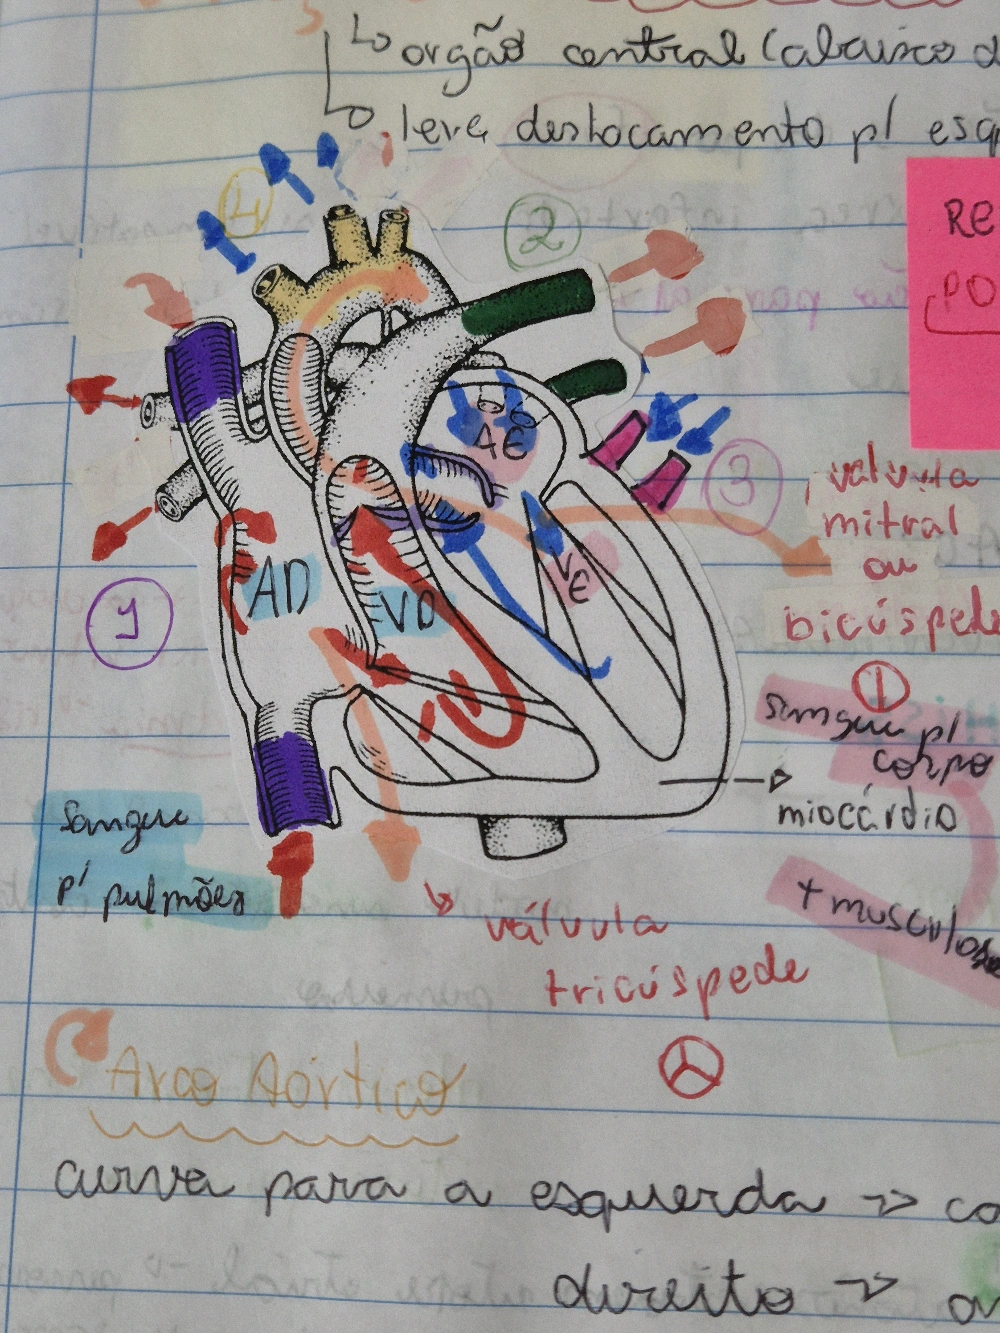 ↳ orgão central (abaixo d
↳ leve deslocamento p/ esq
4
2
RE
PO
AE
3
válvula
mitral
ou
bicúspede
AD
VD
VE
1
sangue p/
corpo
miocárdio
Sangue
p/ pulmões
+ musculoso
válvula
tricúspede
Arco Aórtico
curva para a esquerda → co
direito → a